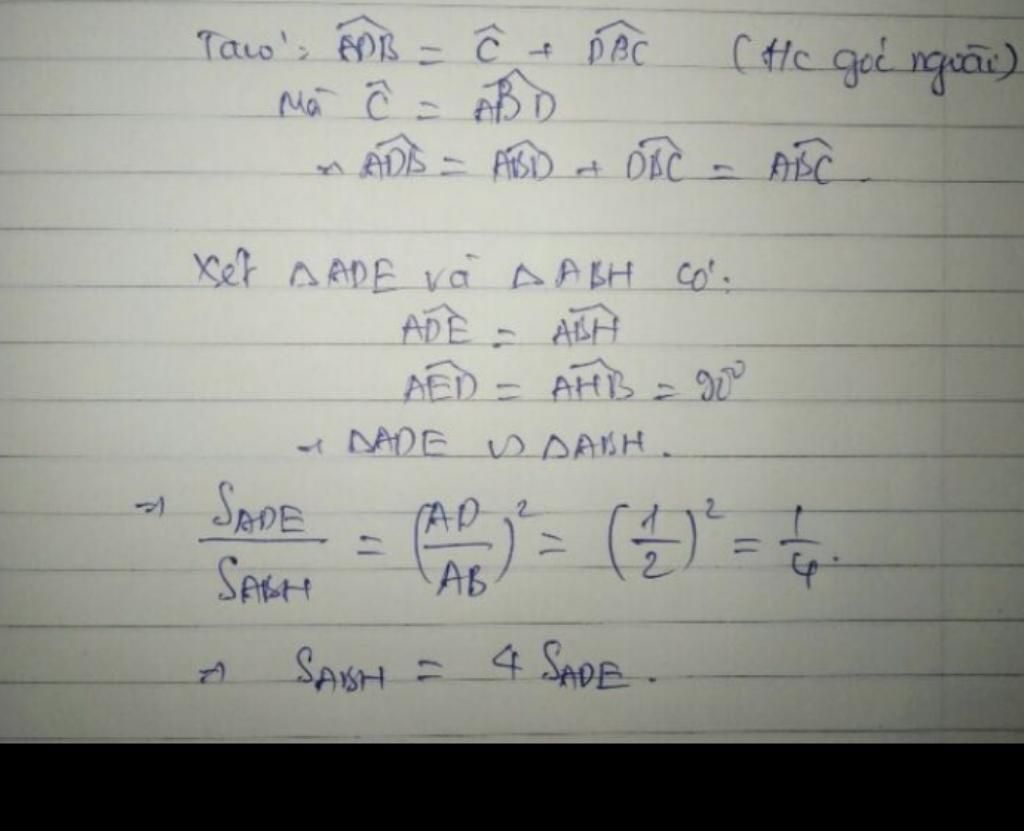 Ta có: \widehat{ADB} = \widehat{C} + \widehat{DBC} (t/c góc ngoài)
Mà \widehat{C} = \widehat{ABD}
→ \widehat{ADB} = \widehat{ABD} + \widehat{DBC} = \widehat{ABC}.
Xét ΔADE và ΔABH có:
\widehat{ADE} = \widehat{ABH}
\widehat{AED} = \widehat{AHB} = 90⁰
→ ΔADE ∽ ΔABH.
⇒ \frac{S_{ADE}}{S_{ABH}} = (\frac{AD}{AB})^2 = (\frac{1}{2})^2 = \frac{1}{4}.
⇒ S_{ABH} = 4 S_{ADE}.